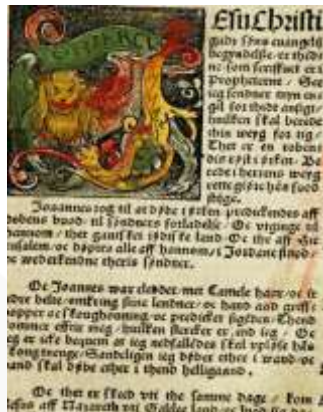 Jesu Christi
guds søns euangelij
begyndelse / er thedt
ne som scriffuet er i
Propheterne / See
ieg sender myn en
gil for thidt ansigt /
huilken skal berede
thin weyg for tig /
Ther er en robens
røst i ørken / Be
rede i herrens weyg
stige.
Joannes tog til at døbe i ørken predickendes aff
bodens bood til syndners forladelse / Oc
hannom / thet gantske iødiske land Oc the aff Jhe
rusalem / oc døptes alle aff hannom / i Jordane
oc wederkendne theris syndner.
Oc Joannes war cleder met Camele haar / oc et
belte omkring sine lendner / oc
oc skoughonning / oc predicket sigendes / Theer
kommer effter meg / huilken stercker er end ieg / Oc
ieg er icke bequem at ieg nedfalledes skal vpløse hås
Sandeligen ieg døber ether i wand / oc
hand skal døbe ether i thend helligaand.
Oc thet er skeed vti the samme dage / kom
Jesus aff Nazareth vti Galilee land / oc